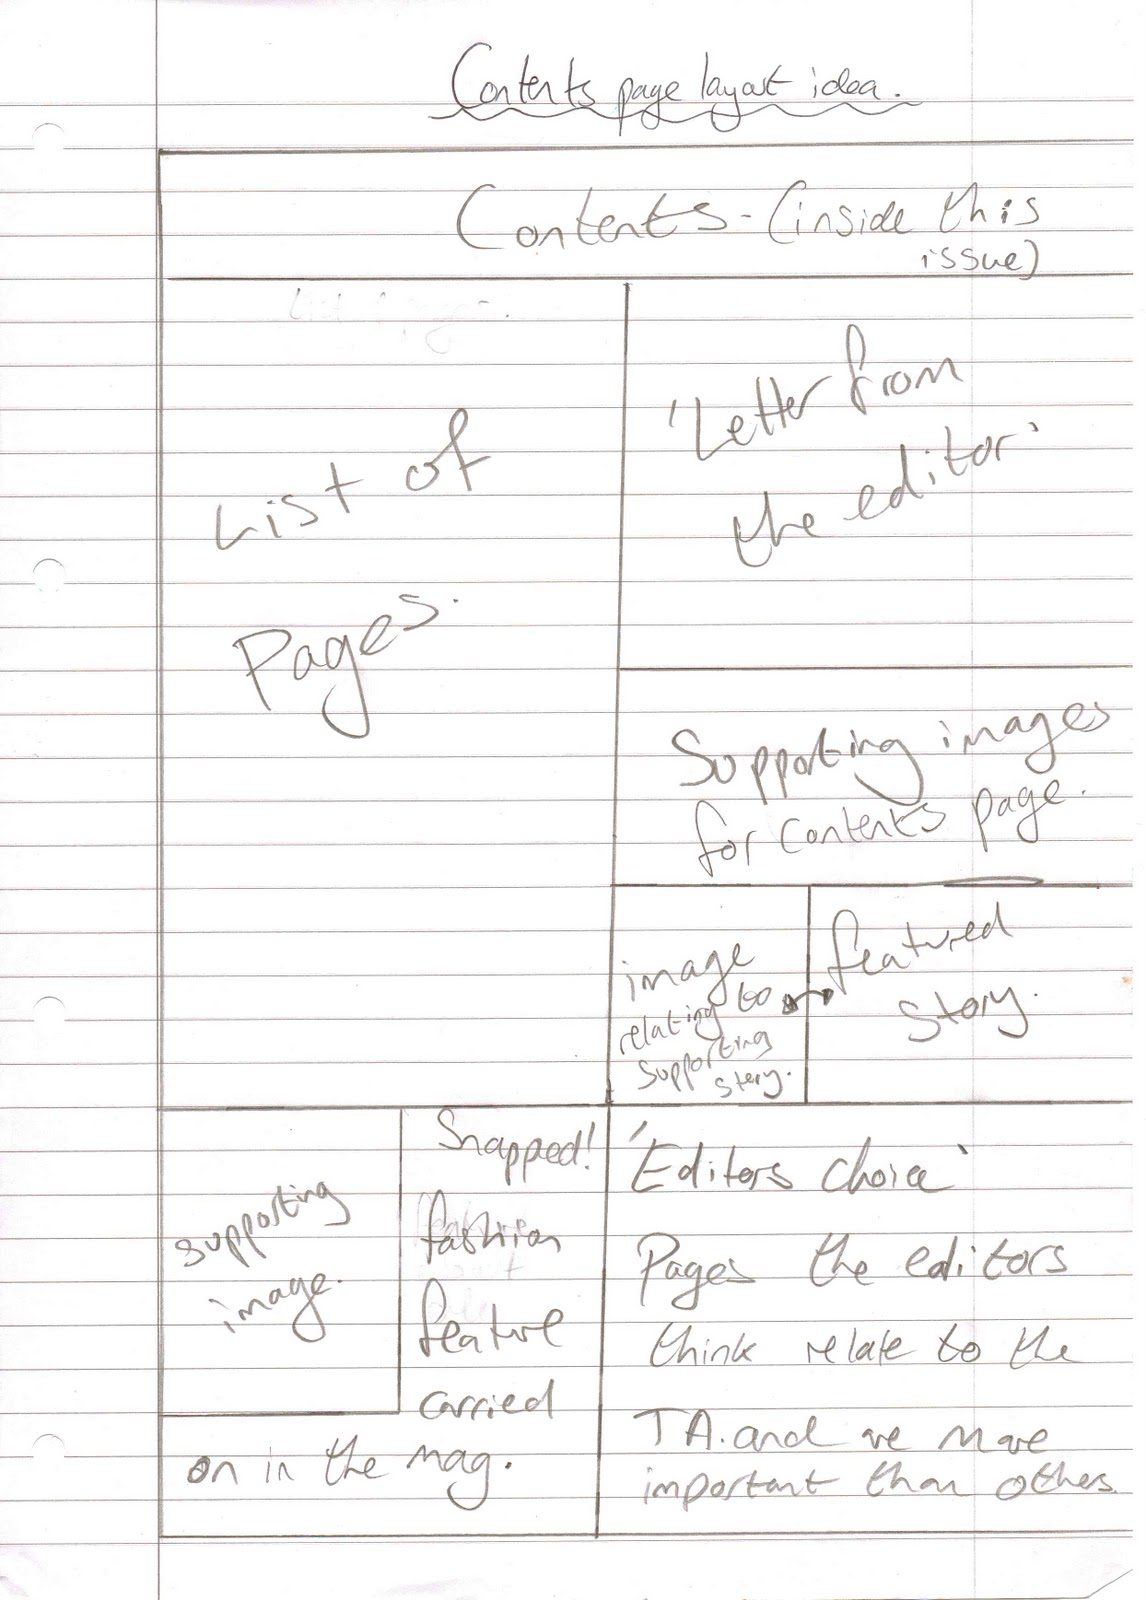 Contents page layout idea.
Contents - (inside this
issue)
List of
Pages.
'Letter from
the editor'
Supporting images
for contents page.
image
relating to
supporting
story.
featured
story.
supporting
image.
Snapped!
fashion
feature
carried
on in the mag.
'Editors choice'
Pages the editors
think relate to the
TA. and are more
important than others